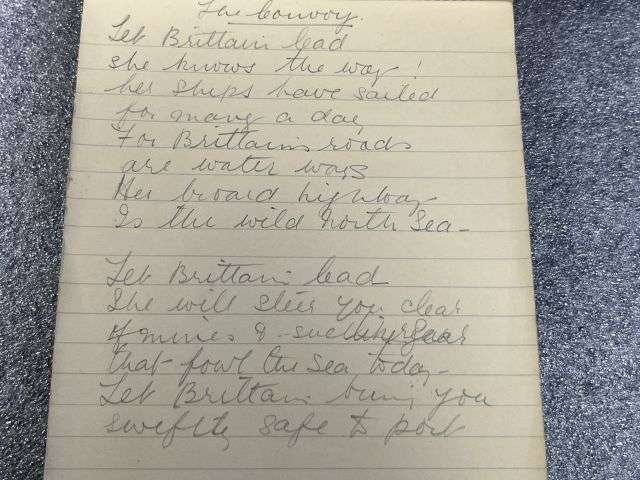 The Convoy.
Let Brittain lead
she knows the way!
her ships have sailed
for many a day
For Brittains roads
are water ways
Her broard highway
Is the wild North Sea -
Let Brittain lead
She will steer you clear
of mines &
that fowl the Sea today -
Let Brittain bring you
swiftly safe to port